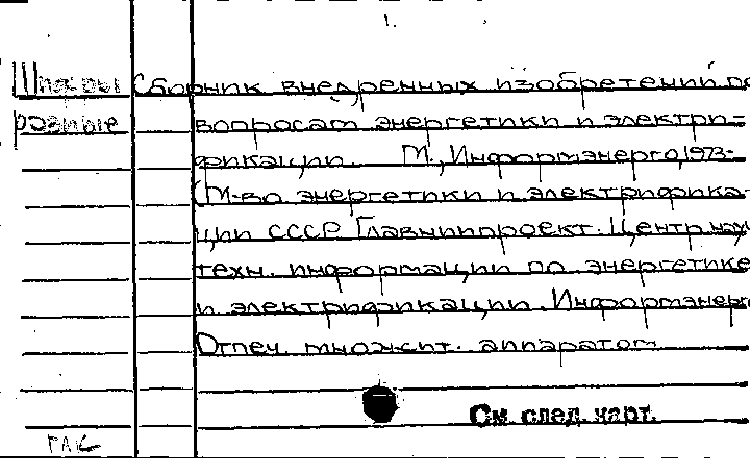 1.
Шифры Сборник внедренных изобретений по
разные вопросам энергетики и электри-
фикации. М., Информэнерго, 1973-
(М-во энергетики и электрифика-
ции СССР. Главниипроект. Центр науч.
техн. информации по энергетике
и электрификации. Информэнерго
Отпеч. множит. аппаратом
См. след. карт.
ГАС